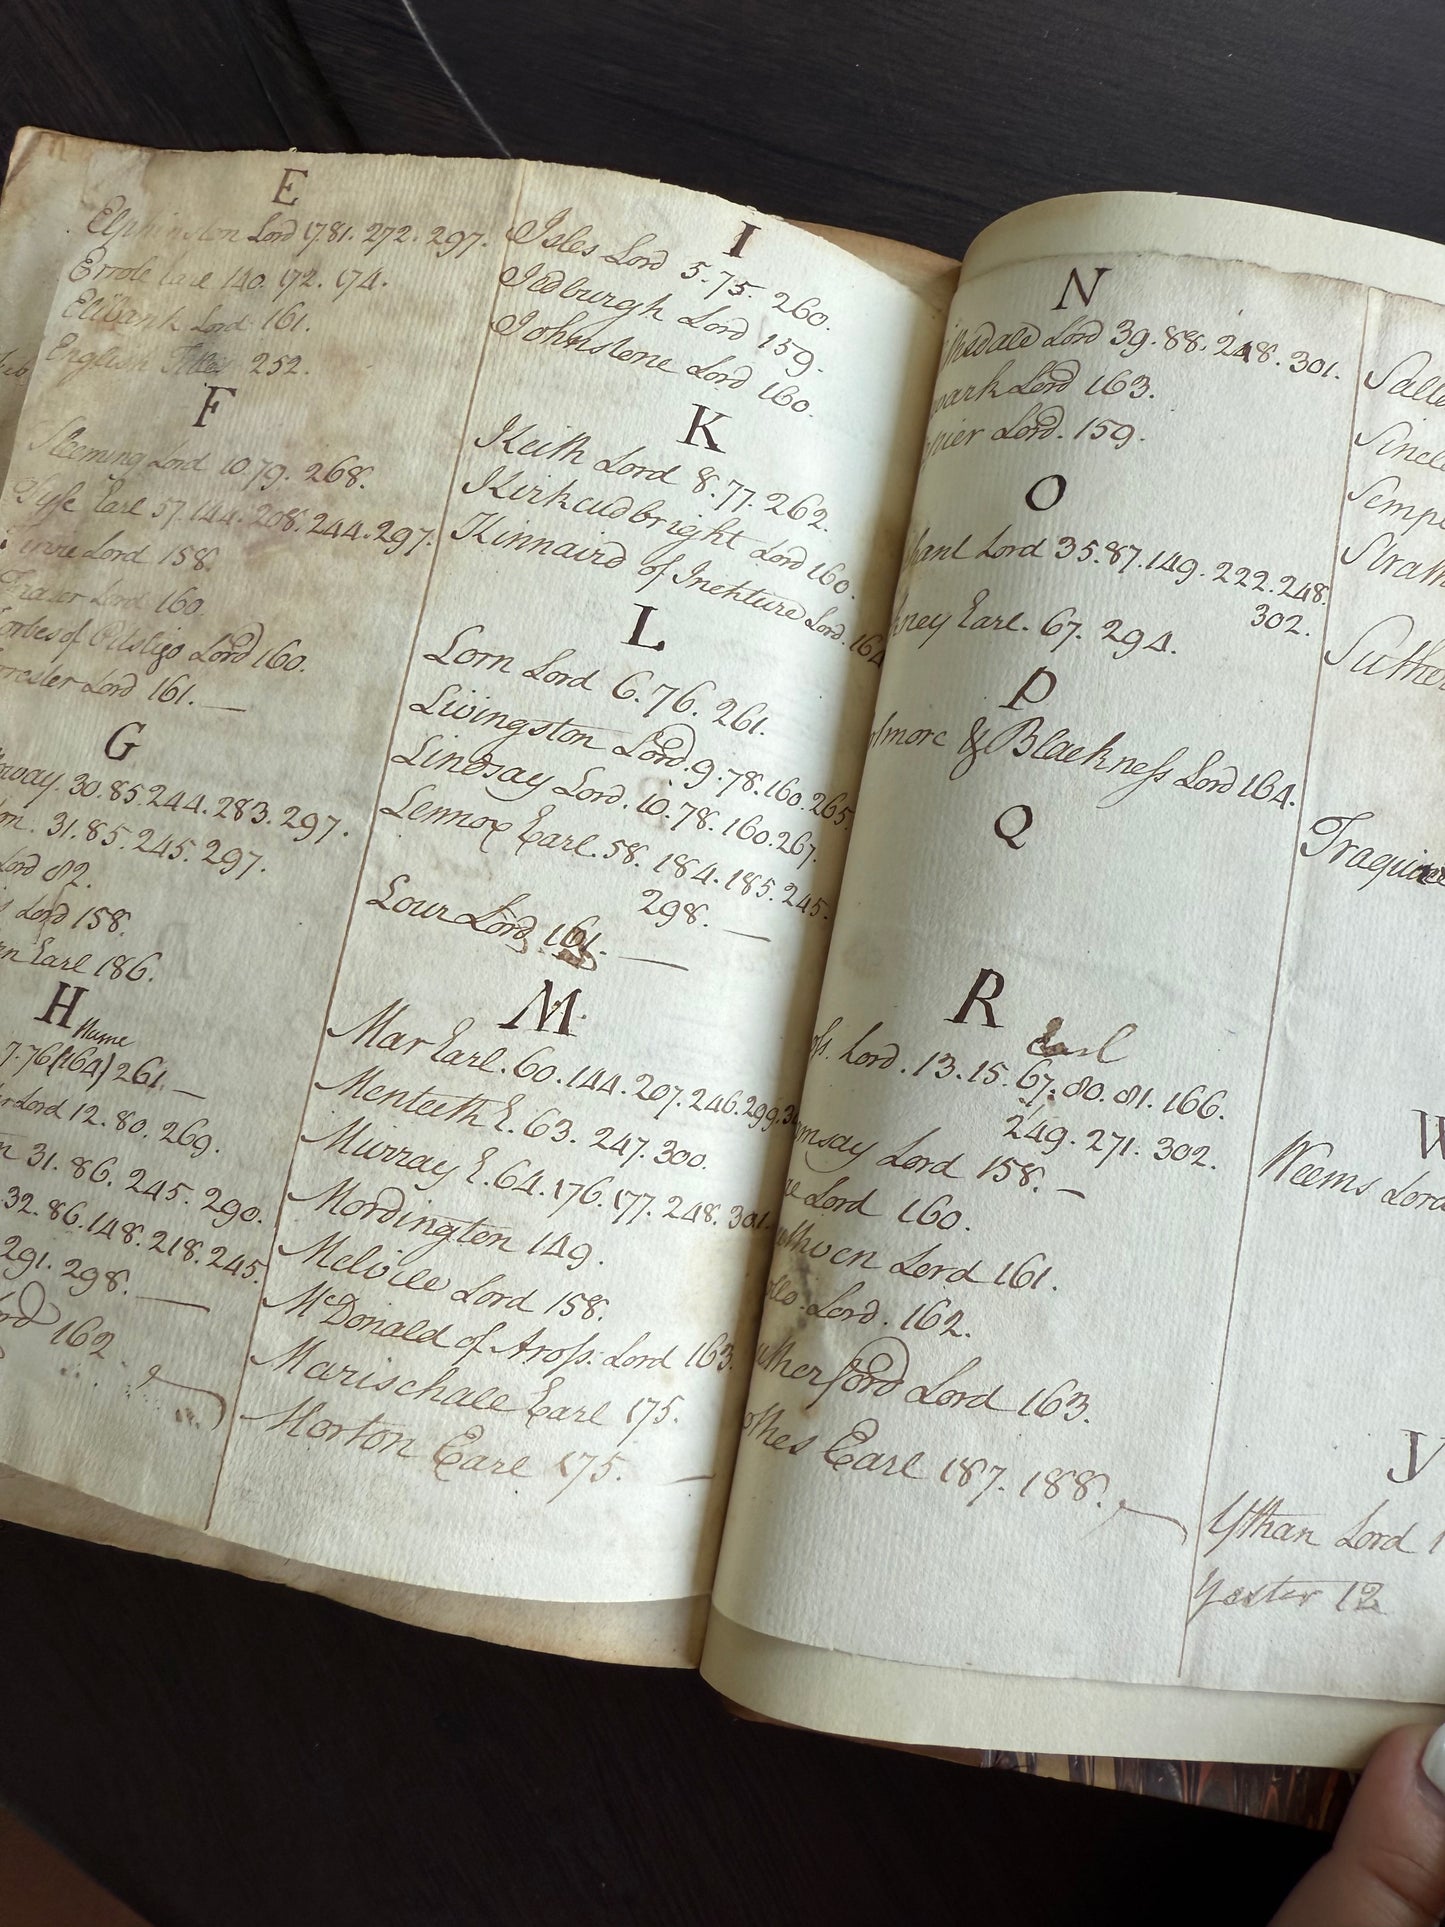 E
Elphinston Lord 1781. 272. 297.
Errole Earl 140. 172. 174.
Elibank Lord 161.
English Titles 252.
F
Fleeming Lord 10. 79. 268.
Fyfe Earl 57. 144. 208. 244. 297.
Lord 158.
Fraser Lord 160.
of Pitsligo Lord 160.
Lord 161. —
G
30. 85. 244. 283. 297.
31. 85. 245. 297.
Lord 82.
Lord 158.
Earl 186.
H
Hume
7. 76 (164) 261. —
Lord 12. 80. 269.
31. 86. 245. 290.
32. 86. 148. 218. 245.
291. 298. —
162
I
Isles Lord 5. 75. 260.
Jedburgh Lord 159.
Johnstone Lord 160.
K
Keith Lord 8. 77. 262.
Kirkcudbright Lord 160.
Kinnaird of Inchture Lord. 164
L
Lorn Lord 6. 76. 261.
Livingston Lord. 9. 78. 160. 265.
Lindsay Lord. 10. 78. 160. 267.
Lennox Earl. 58. 184. 185. 245.
298. —
Lour Lord 161. —
M
Mar Earl. 60. 144. 207. 246. 299.
Menteith E. 63. 247. 300.
Murray E. 64. 176. 177. 248. 301.
Mordington 149.
Melvile Lord 158.
McDonald of Aross. Lord 163.
Marischall Earl 175.
Morton Earl 175. —
N
Lord 39. 88. 248. 301.
Lord 163.
Lord. 159.
O
Lord 35. 87. 149. 222. 248.
302.
Earl. 67. 294.
P
& Blackness Lord 164.
Q
R
Earl
Lord. 13. 15. 67. 80. 81. 166.
249. 271. 302.
Lord 158. —
Lord 160.
Lord 161.
Lord. 162.
Lord 163.
Earl 187. 188.
Traquire
W
Weems Lord
Y
Ythan Lord
Yester 12